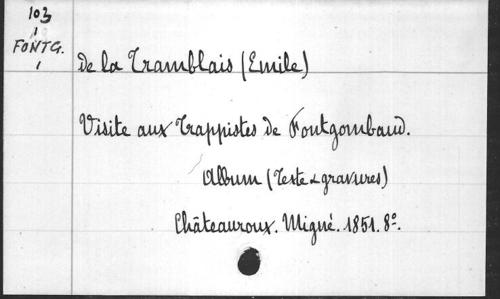 103
1
FONTG.
1
De la Tramblais (Emile)
Visite aux Trappistes de Fontgombaud.
Album (Texte & gravures)
Châteauroux. Migné. 1851. 8º.